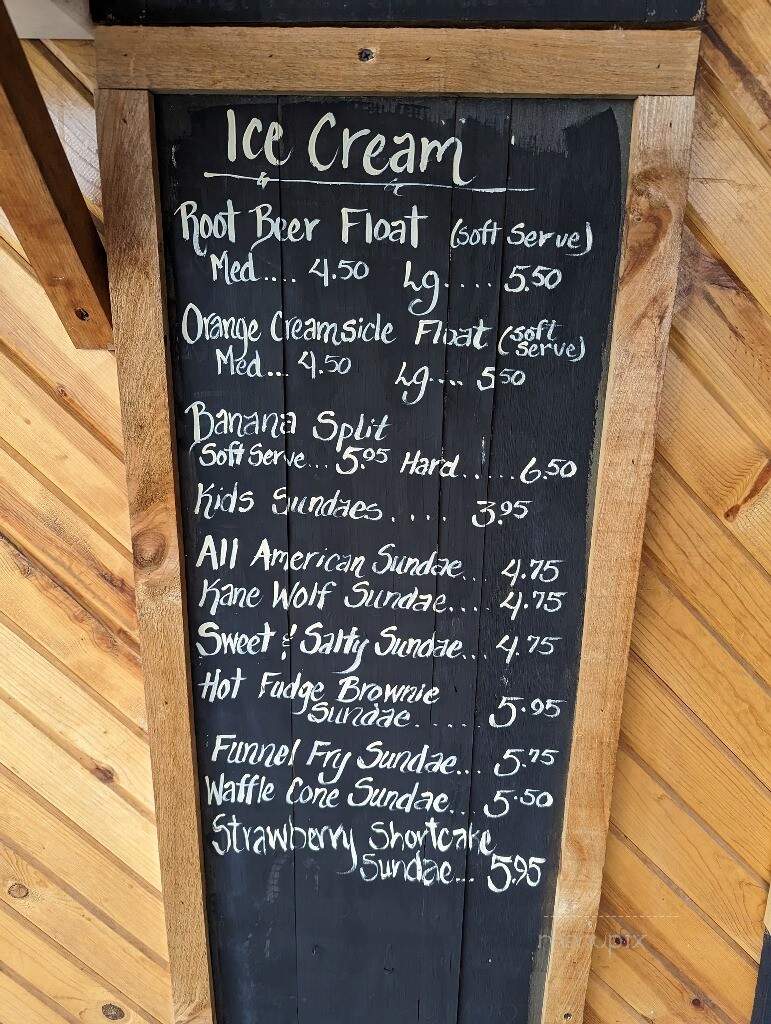 Ice Cream
Root Beer Float (soft serve)
Med.... 4.50 Lg.... 5.50
Orange Creamsicle Float (soft serve)
Med... 4.50 Lg.... 5.50
Banana Split
(Soft Serve... 5.95 Hard...... 6.50
Kids Sundaes .... 3.95
All American Sundae... 4.75
Kane Wolf Sundae.... 4.75
Sweet & Salty Sundae... 4.75
Hot Fudge Brownie
Sundae..... 5.95
Funnel Fry Sundae... 5.75
Waffle Cone Sundae... 5.50
Strawberry Shortcake
Sundae... 5.95
menupix